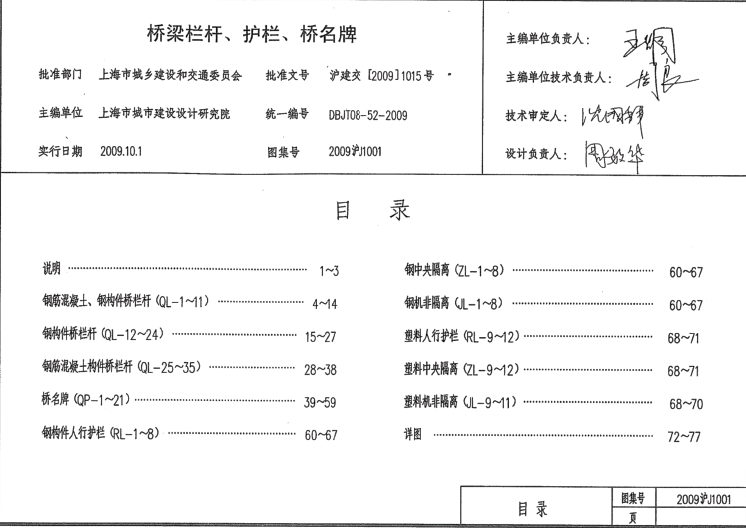 桥梁栏杆、护栏、桥名牌
批准部门 上海市城乡建设和交通委员会 批准文号 沪建交[2009]1015号
主编单位 上海市城市建设设计研究院 统一编号 DBJT08-52-2009
实行日期 2009.10.1 图集号 2009沪J1001
主编单位负责人:
主编单位技术负责人:
技术审定人:
设计负责人:
目 录
说明 1~3
钢筋混凝土、钢构件桥栏杆(QL-1~11) 4~14
钢构件桥栏杆(QL-12~24) 15~27
钢筋混凝土构件桥栏杆(QL-25~35) 28~38
桥名牌(QP-1~21) 39~59
钢构件人行护栏(RL-1~8) 60~67
钢中央隔离(ZL-1~8) 60~67
钢机非隔离(JL-1~8) 60~67
塑料人行护栏(RL-9~12) 68~71
塑料中央隔离(ZL-9~12) 68~71
塑料机非隔离(JL-9~11) 68~70
详图 72~77
目录 图集号 2009沪J1001
页